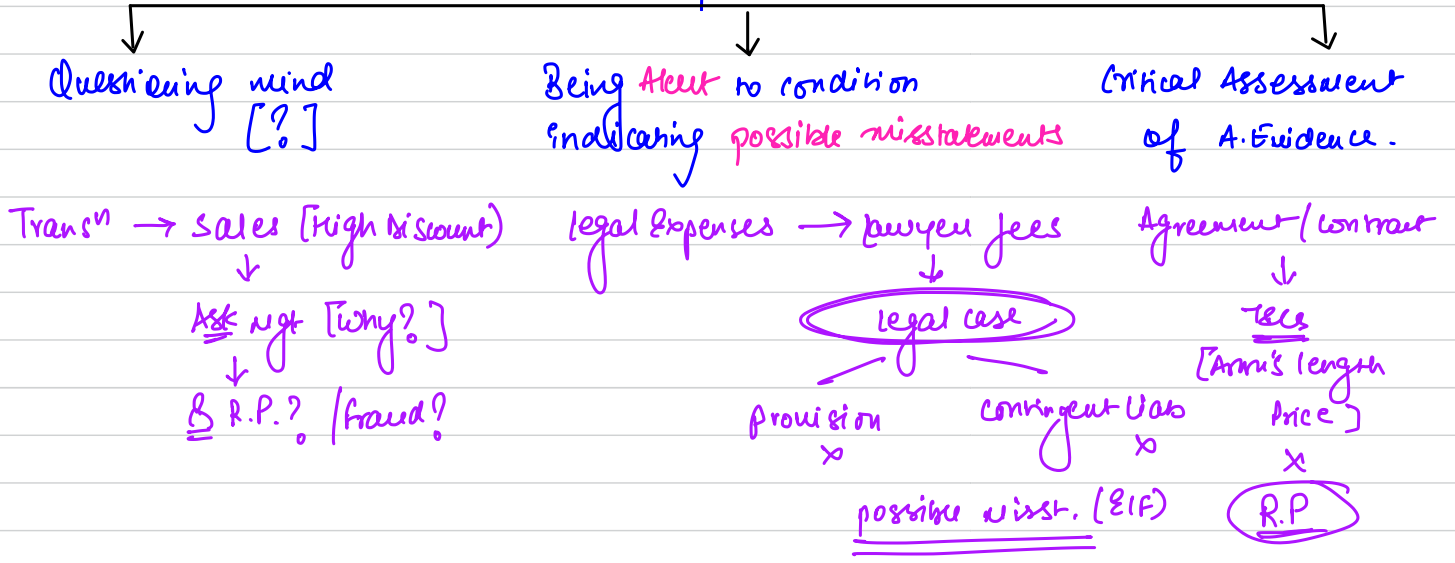 Questioning mind
[?]
Transⁿ → sales [High Discount)
↓
Ask Mgt [Why?]
↓
& R.P.? / fraud?
Being Alert to condition
indicating possible misstatements
legal Expenses → lawyer fees
↓
legal case
provision contingent liab
x x
possible misst. (E/F)
Critical Assessment
of A. Evidence.
Agreement / contract
↓
T&Cs
[Arm's length
Price]
x
R.P